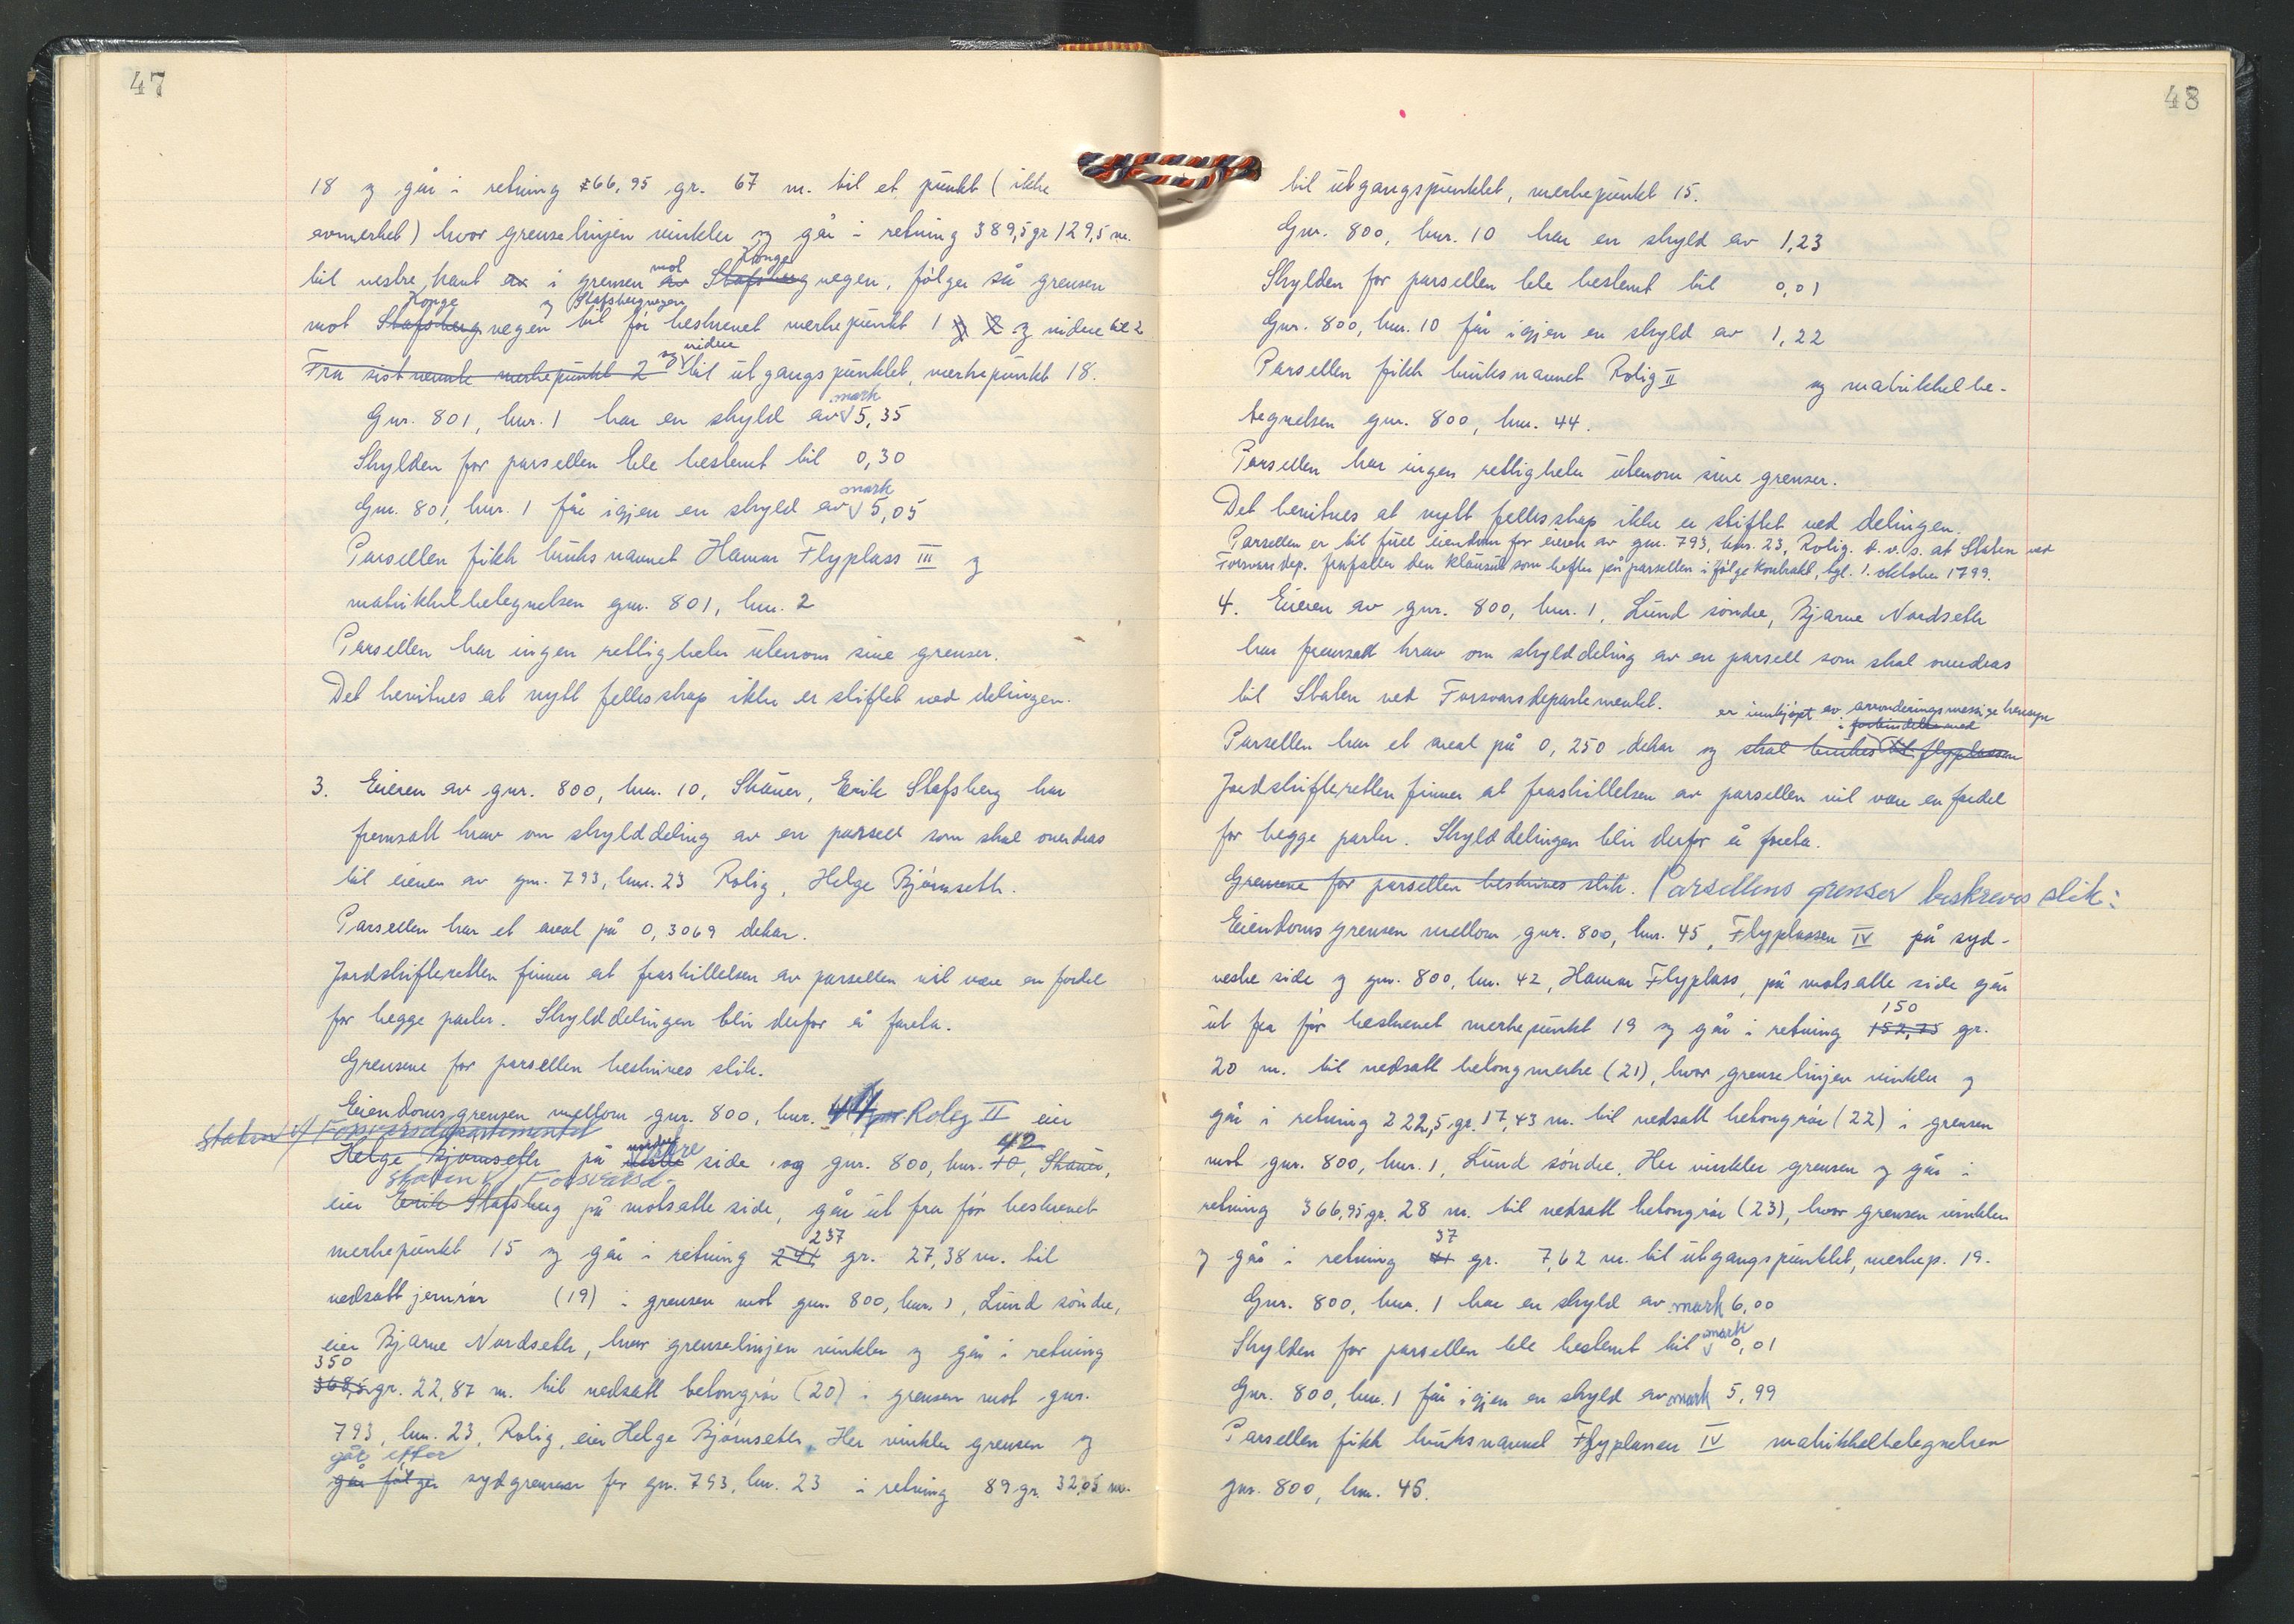 47
18 og går i retning 266,95 gr. 67 m. til et punkt (ikke
avmerket) hvor grenselinjen vinkler og går i retning 389,5 gr 129,5 m.
til vestre kant av i grensen av mot Stafsberg Kongevegen, følger så grensen
mot Stafsberg Kongevegen og Stafsbergvegen til før beskrevet merkepunkt 1 og 2 og videre til 2
Fra sistnevnte merkepunkt 2 og videre til utgangspunktet, merkepunkt 18.
Gnr. 801, bnr. 1 har en skyld av mark 5,35
Skylden for parsellen ble bestemt til 0,30
Gnr. 801, bnr. 1 får igjen en skyld av mark 5,05
Parsellen fikk bruksnavnet Hamar Flyplass III og
matrikkelbetegnelsen gnr. 801, bnr. 2
Parsellen har ingen rettigheter utenom sine grenser.
Det bevitnes at nytt fellesskap ikke er stiftet ved delingen.
3. Eieren av gnr. 800, bnr. 10, Skauer, Erik Stafsberg har
fremsatt krav om skylddeling av en parsell som skal overdras
til eieren av gnr. 793, bnr. 23 Rolig, Helge Bjørnseth.
Parsellen har et areal på 0,3069 dekar.
Jordskifteretten finner at fraskillelsen av parsellen vil være en fordel
for begge parter. Skylddelingen blir derfor å foreta.
Grensene for parsellen beskrives slik.
Eiendomsgrensen mellom gnr. 800, bnr. 44 Rolig II eier
Staten v/ Forsvarsdepartementet
Helge Bjørnseth på side og gnr. 800, bnr. 10 42, Skauer,
Staten v/ Forsvarsd.
eier Erik Stafsberg på motsatte side, går ut fra før beskrevet
merkepunkt 15 og går i retning 241 237 gr. 27,38 m. til
nedsatt jernrør (19) i grensen mot gnr. 800, bnr. 1, Lund søndre,
eier Bjarne Nordseth, hvor grenselinjen vinkler og går i retning
350
368,5 gr. 22,87 m. til nedsatt betongrør (20) i grensen mot gnr.
793, bnr. 23, Rolig, eier Helge Bjørnseth. Her vinkler grensen og
går etter
går følger sydgrensen for gnr. 793, bnr. 23 i retning 89 gr. 32,05 m.
48
til utgangspunktet, merkepunkt 15.
Gnr. 800, bnr. 10 har en skyld av 1,23
Skylden for parsellen ble bestemt til 0,01
Gnr. 800, bnr. 10 får igjen en skyld av 1,22
Parsellen fikk bruksnavnet Rolig II og matrikkelbe-
tegnelsen gnr. 800, bnr. 44.
Parsellen har ingen rettigheter utenom sine grenser.
Det bevitnes at nytt fellesskap ikke er stiftet ved delingen.
Parsellen er til full eiendom for eieren av gnr. 793, bnr. 23, Rolig. d.v.s. at Staten ved
Forsvarsdep. frafaller den klausul som hefter på parsellen i følge kontrakt, tgl. 1. oktober 1799.
4. Eieren av gnr. 800, bnr. 1, Lund søndre, Bjarne Nordseth
har fremsatt krav om skylddeling av en parsell som skal overdras
til Staten ved Forsvarsdepartementet.
er innkjøpt av arronderingsmessige hensyn
i forbindelse med
Parsellen har et areal på 0,250 dekar og skal brukes til flyplassen
Jordskifteretten finner at fraskillelsen av parsellen vil være en fordel
for begge parter. Skylddelingen blir derfor å foreta.
Grensene for parsellen beskrives slik. Parsellens grenser beskreves slik:
Eiendomsgrensen mellom gnr. 800, bnr. 45, Flyplassen IV på syd-
vestre side og gnr. 800, bnr. 42, Hamar Flyplass, på motsatte side går
ut fra før beskrevet merkepunkt 19 og går i retning 152,75 150 gr.
20 m. til nedsatt betongmerke (21), hvor grenselinjen vinkler og
går i retning 222,5 gr. 17,43 m. til nedsatt betongrør (22) i grensen
mot gnr. 800, bnr. 1, Lund søndre. Her vinkler grensen og går i
retning 366,95 gr. 28 m. til nedsatt betongrør (23), hvor grensen vinkler
og går i retning 41 37 gr. 7,62 m. til utgangspunktet, merkep. 19.
Gnr. 800, bnr. 1 har en skyld av mark 6,00
Skylden for parsellen ble bestemt til mark 0,01
Gnr. 800, bnr. 1 får igjen en skyld av mark 5,99
Parsellen fikk bruksnavnet Flyplassen IV matrikkelbetegnelsen
gnr. 800, bnr. 45.